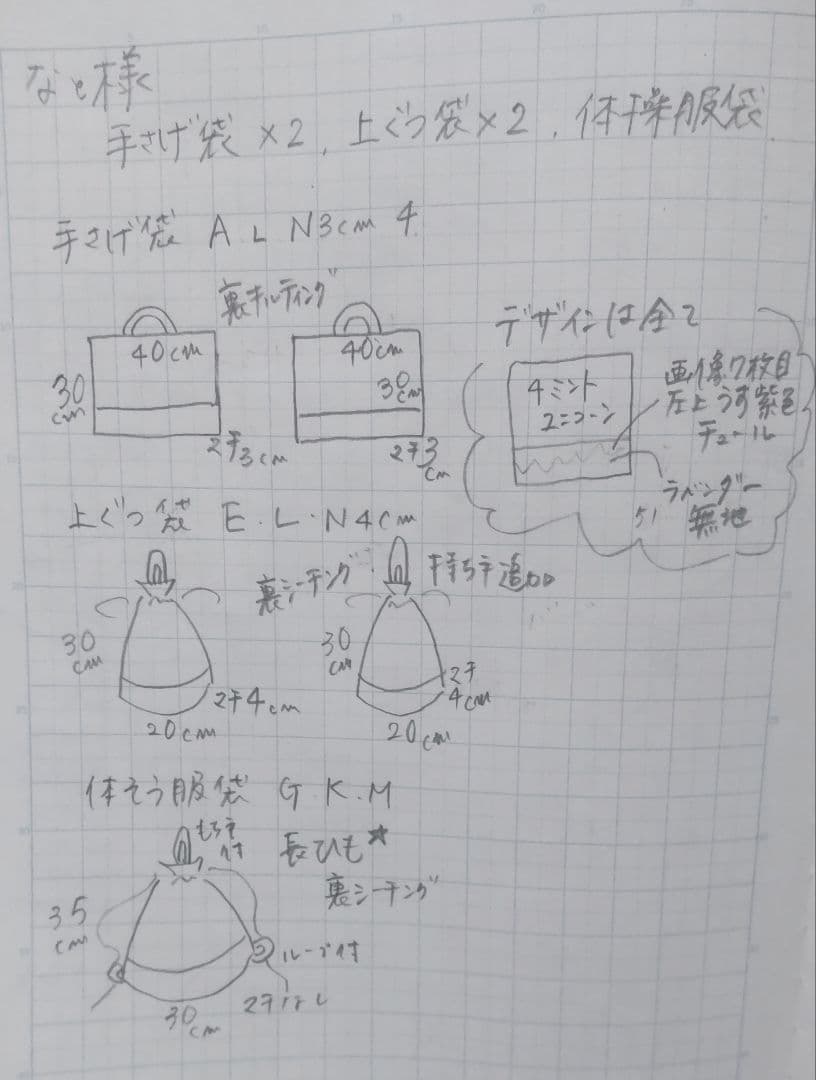 なと様
手さげ袋×2、上ぐつ袋×2、体操服袋
手さげ袋 A L N3cm 4
裏キルティング
40cm
30cm
マチ3cm
40cm
30cm
マチ3cm
デザインは全て
4ミント
ユニコーン
画像7枚目
左上うす紫色
チュール
ラベンダー
無地
上ぐつ袋 E.L.N4cm
裏シーチング
持ち手追加
30cm
マチ4cm
20cm
30cm
マチ4cm
20cm
体そう服袋 G.K.M
もち手付
長ひも★
裏シーチング
35cm
ループ付
マチなし
30cm